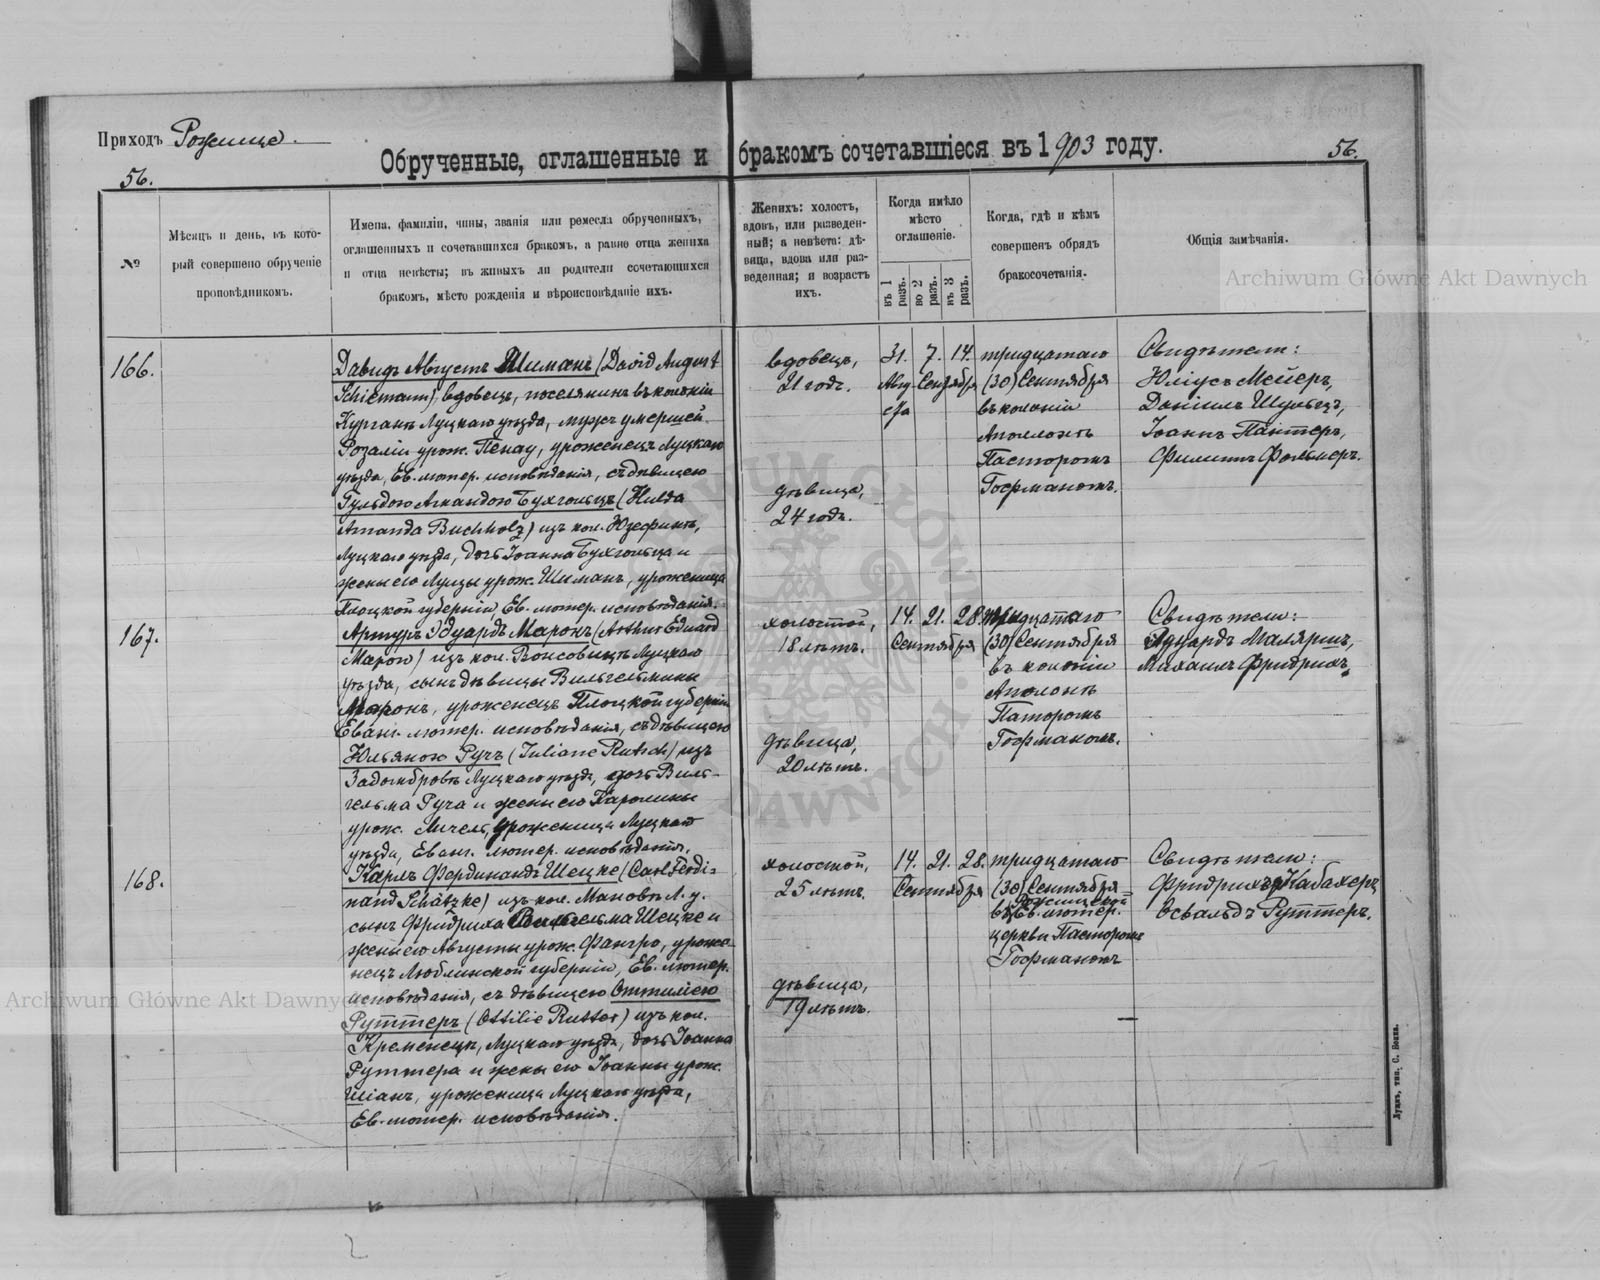 Приходъ Рожище
Обрученные, оглашенные и бракомъ сочетавшіеся въ 1903 году.
56.
56.
№
Мѣсяцъ и день, въ кото-
рый совершено обрученіе
проповѣдникомъ.
Имена, фамиліи, чины, званія или ремесла обрученныхъ,
оглашенныхъ и сочетавшихся бракомъ, а равно отца жениха
и отца невѣсты; въ живыхъ ли родители сочетающихся
бракомъ, мѣсто рожденія и вѣроисповѣданіе ихъ.
Женихъ: холостъ,
вдовъ, или разведен-
ный; а невѣста: дѣ-
вица, вдова или раз-
веденная; и возрастъ
ихъ.
Когда имѣло
мѣсто
оглашеніе.
въ 1 разъ.
во 2 разъ.
въ 3 разъ.
Когда, гдѣ и кѣмъ
совершенъ обрядъ
бракосочетанія.
Общія замѣчанія.
166.
Давидъ Августъ Шиманъ (David August
Schiemann), вдовецъ, поселянинъ въ колоніи
Курганъ Луцкаго уѣзда, мужъ умершей
Розаліи урож. Пенау, уроженецъ Луцкаго
уѣзда, Ев. лютер. исповѣданія, съ дѣвицею
Гульдою Амандою Бухгольцъ (Hulda
Amanda Buchholz) изъ кол. Юзефинъ,
Луцкаго уѣзда, дочь Іоанна Бухгольца и
жены его Луизы урож. Шиманъ, уроженица
Плоцкой губерніи Ев. лютер. исповѣданія.
вдовецъ,
21 годъ.
дѣвица,
24 годъ.
31. 7. 14.
Авгу- Сентября
ста
тридцатаго
(30) Сентября
въ колоніи
Аполлонъ
Пасторомъ
Гофманомъ.
Свидѣтели:
Юліусъ Мейеръ,
Даніилъ Шульцъ,
Іоаннъ Пантеръ,
Филиппъ Фольмеръ.
167.
Артуръ Эдуардъ Маронъ (Arthur Eduard
Maron) изъ кол. Луцкаго
уѣзда, сынъ дѣвицы Вильгельмины
Маронъ, уроженецъ Плоцкой губерніи
Еванг. лютер. исповѣданія, съ дѣвицею
Юльяною Ручъ (Juliane Rutsch) изъ
Луцкаго уѣзда, дочь Виль-
гельма Руча и жены его Каролины
урож. уроженица Луцкаго
уѣзда, Еванг. лютер. исповѣданія.
холостой,
18 лѣтъ.
дѣвица,
20 лѣтъ.
14. 21. 28.
Сентября
тридцатаго
(30) Сентября
въ колоніи
Аполонъ
Пасторомъ
Гофманомъ.
Свидѣтели:
Эдуардъ Малярши,
Михаилъ Фридрихъ.
168.
Карлъ Фердинандъ Шецке (Carl Ferdi-
nand Schätzke) изъ кол. Мановъ Л. у.
сынъ Фридриха Вильгельма Шецке и
жены его Августы урож. Фангро, уроже-
нецъ Люблинской губерніи, Ев. лютер.
исповѣданія, съ дѣвицею Оттиліею
Руттеръ (Ottilie Rutter) изъ кол.
Кременецъ, Луцкаго уѣзда, дочь Іоанна
Руттера и жены его Іоанны урож.
Шіанъ, уроженица Луцкаго уѣзда,
Ев. лютер. исповѣданія.
холостой,
25 лѣтъ.
дѣвица,
19 лѣтъ.
14. 21. 28.
Сентября
тридцатаго
(30) Сентября
Рожищской
въ Ев. лютер.
церкви Пасторомъ
Гофманомъ
Свидѣтели:
Фридрихъ Кабахеръ
Освальдъ Руттеръ.
Луцкъ, тип. С. Бокка.
Archiwum Główne Akt Dawnych
Archiwum Główne Akt Dawnych